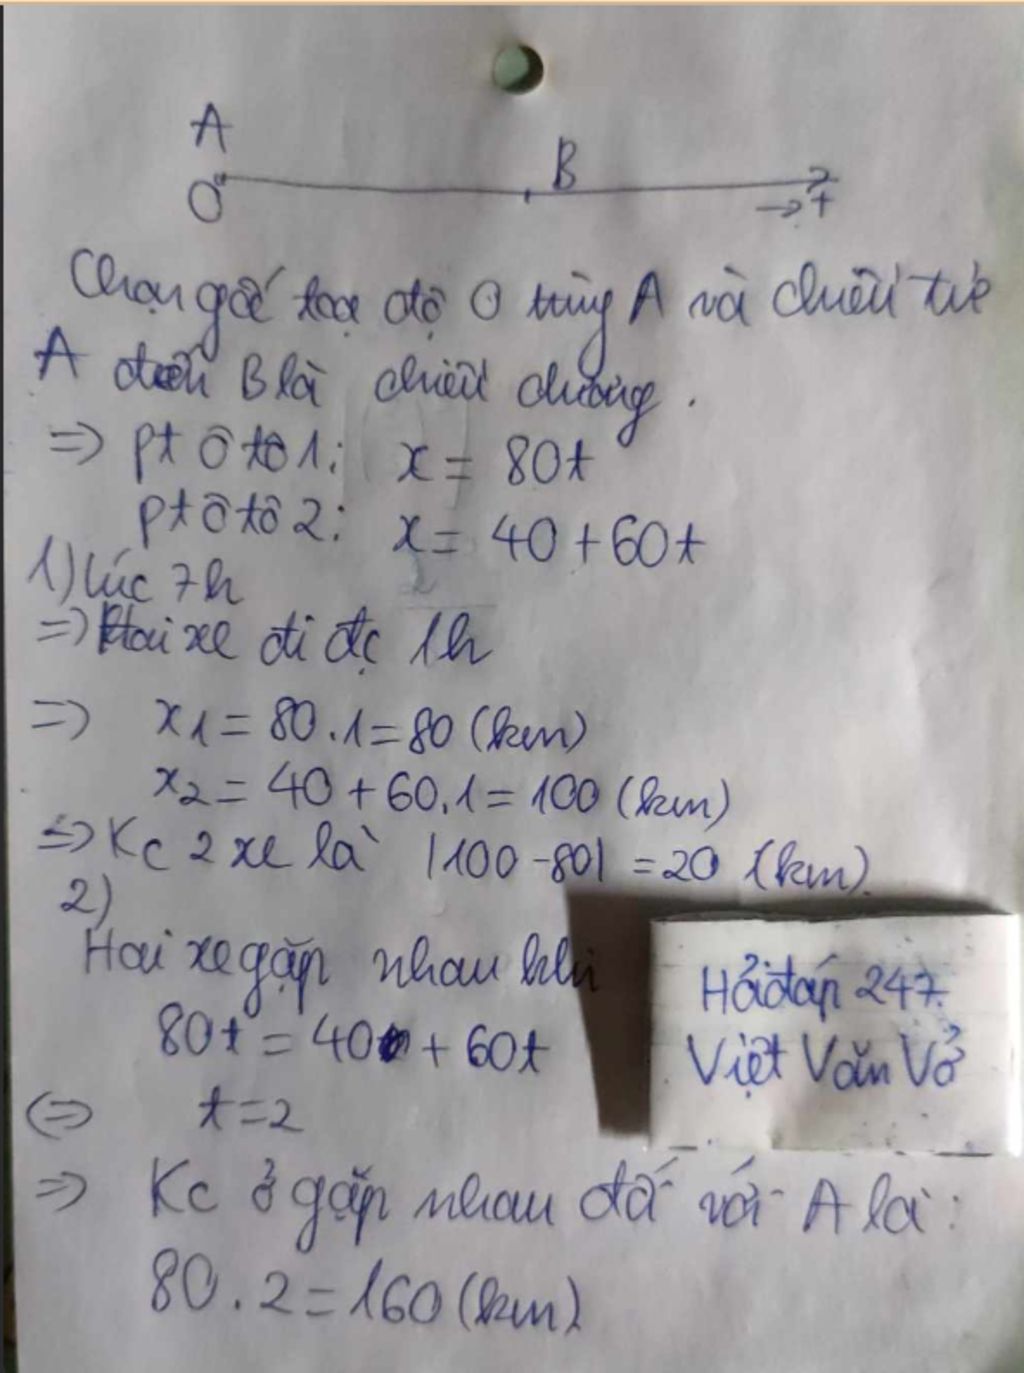 A
B
O
→ +
Chọn gốc toạ độ O trùng A và chiều từ
A đến B là chiều dương.
=> pt ô tô 1: x = 80t
pt ô tô 2: x = 40 + 60t
1) lúc 7h
=> Hai xe đi đc 1h
=> x1 = 80.1 = 80 (km)
x2 = 40 + 60.1 = 100 (km)
=> Kc 2 xe là |100 - 80| = 20 (km).
2)
Hai xe gặp nhau khi
80t = 40 + 60t
<=> t = 2
=> Kc ở gặp nhau đối với A là:
80.2 = 160 (km)
Hỏi đáp 247.
Việt Văn Vở